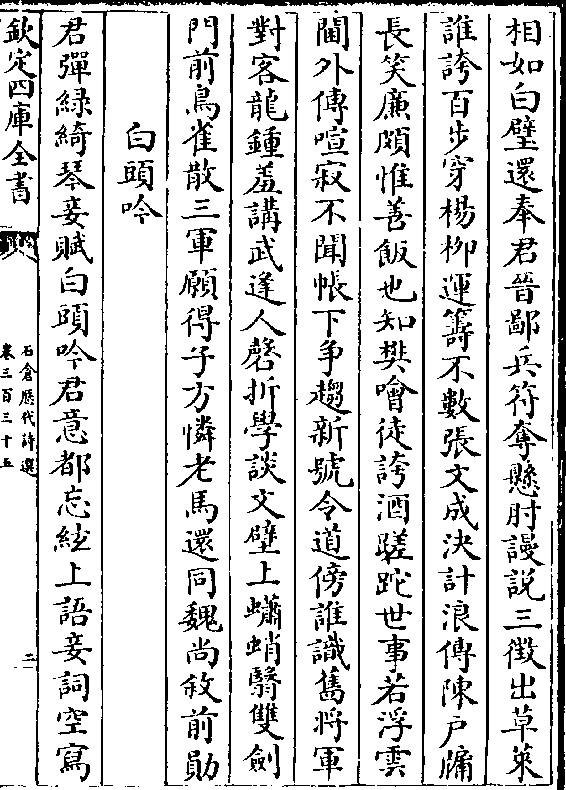 相如白璧還奉君晉鄙兵符奪懸肘謾説三徴出草萊
誰誇百步穿楊柳運籌不數張文成決計浪傳陳户牖
長笑廉頗惟善飯也知樊噲徒誇酒蹉跎世事若浮雲
閫外傳喧寂不聞帳下争趨新號令道傍誰識舊將軍
對客龍鍾羞講武逢人磬折學談文壁上蠨蛸翳雙劍
門前鳥雀散三軍願得子方憐老馬還同魏尚敘前勛
白頭吟
君彈緑綺琴妾賦白頭吟君意都忘絃上語妾詞空寫
欽定四庫全書
石倉歷代詩選
卷三百三十五
二